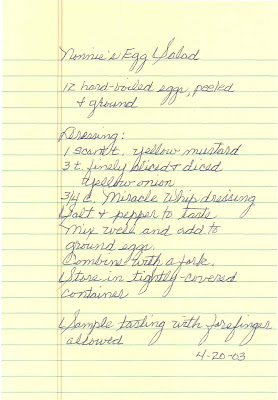 Nonnie's Egg Salad
12 hard-boiled eggs, peeled
& ground
Dressing:
1 scant t. yellow mustard
3 t. finely sliced & diced
yellow onion
3/4 c. Miracle Whip dressing
Salt & pepper to taste
Mix well and add to
ground egg.
Combine with a fork.
Store in tightly-covered
container
Sample tasting with forefinger
allowed
4-20-03